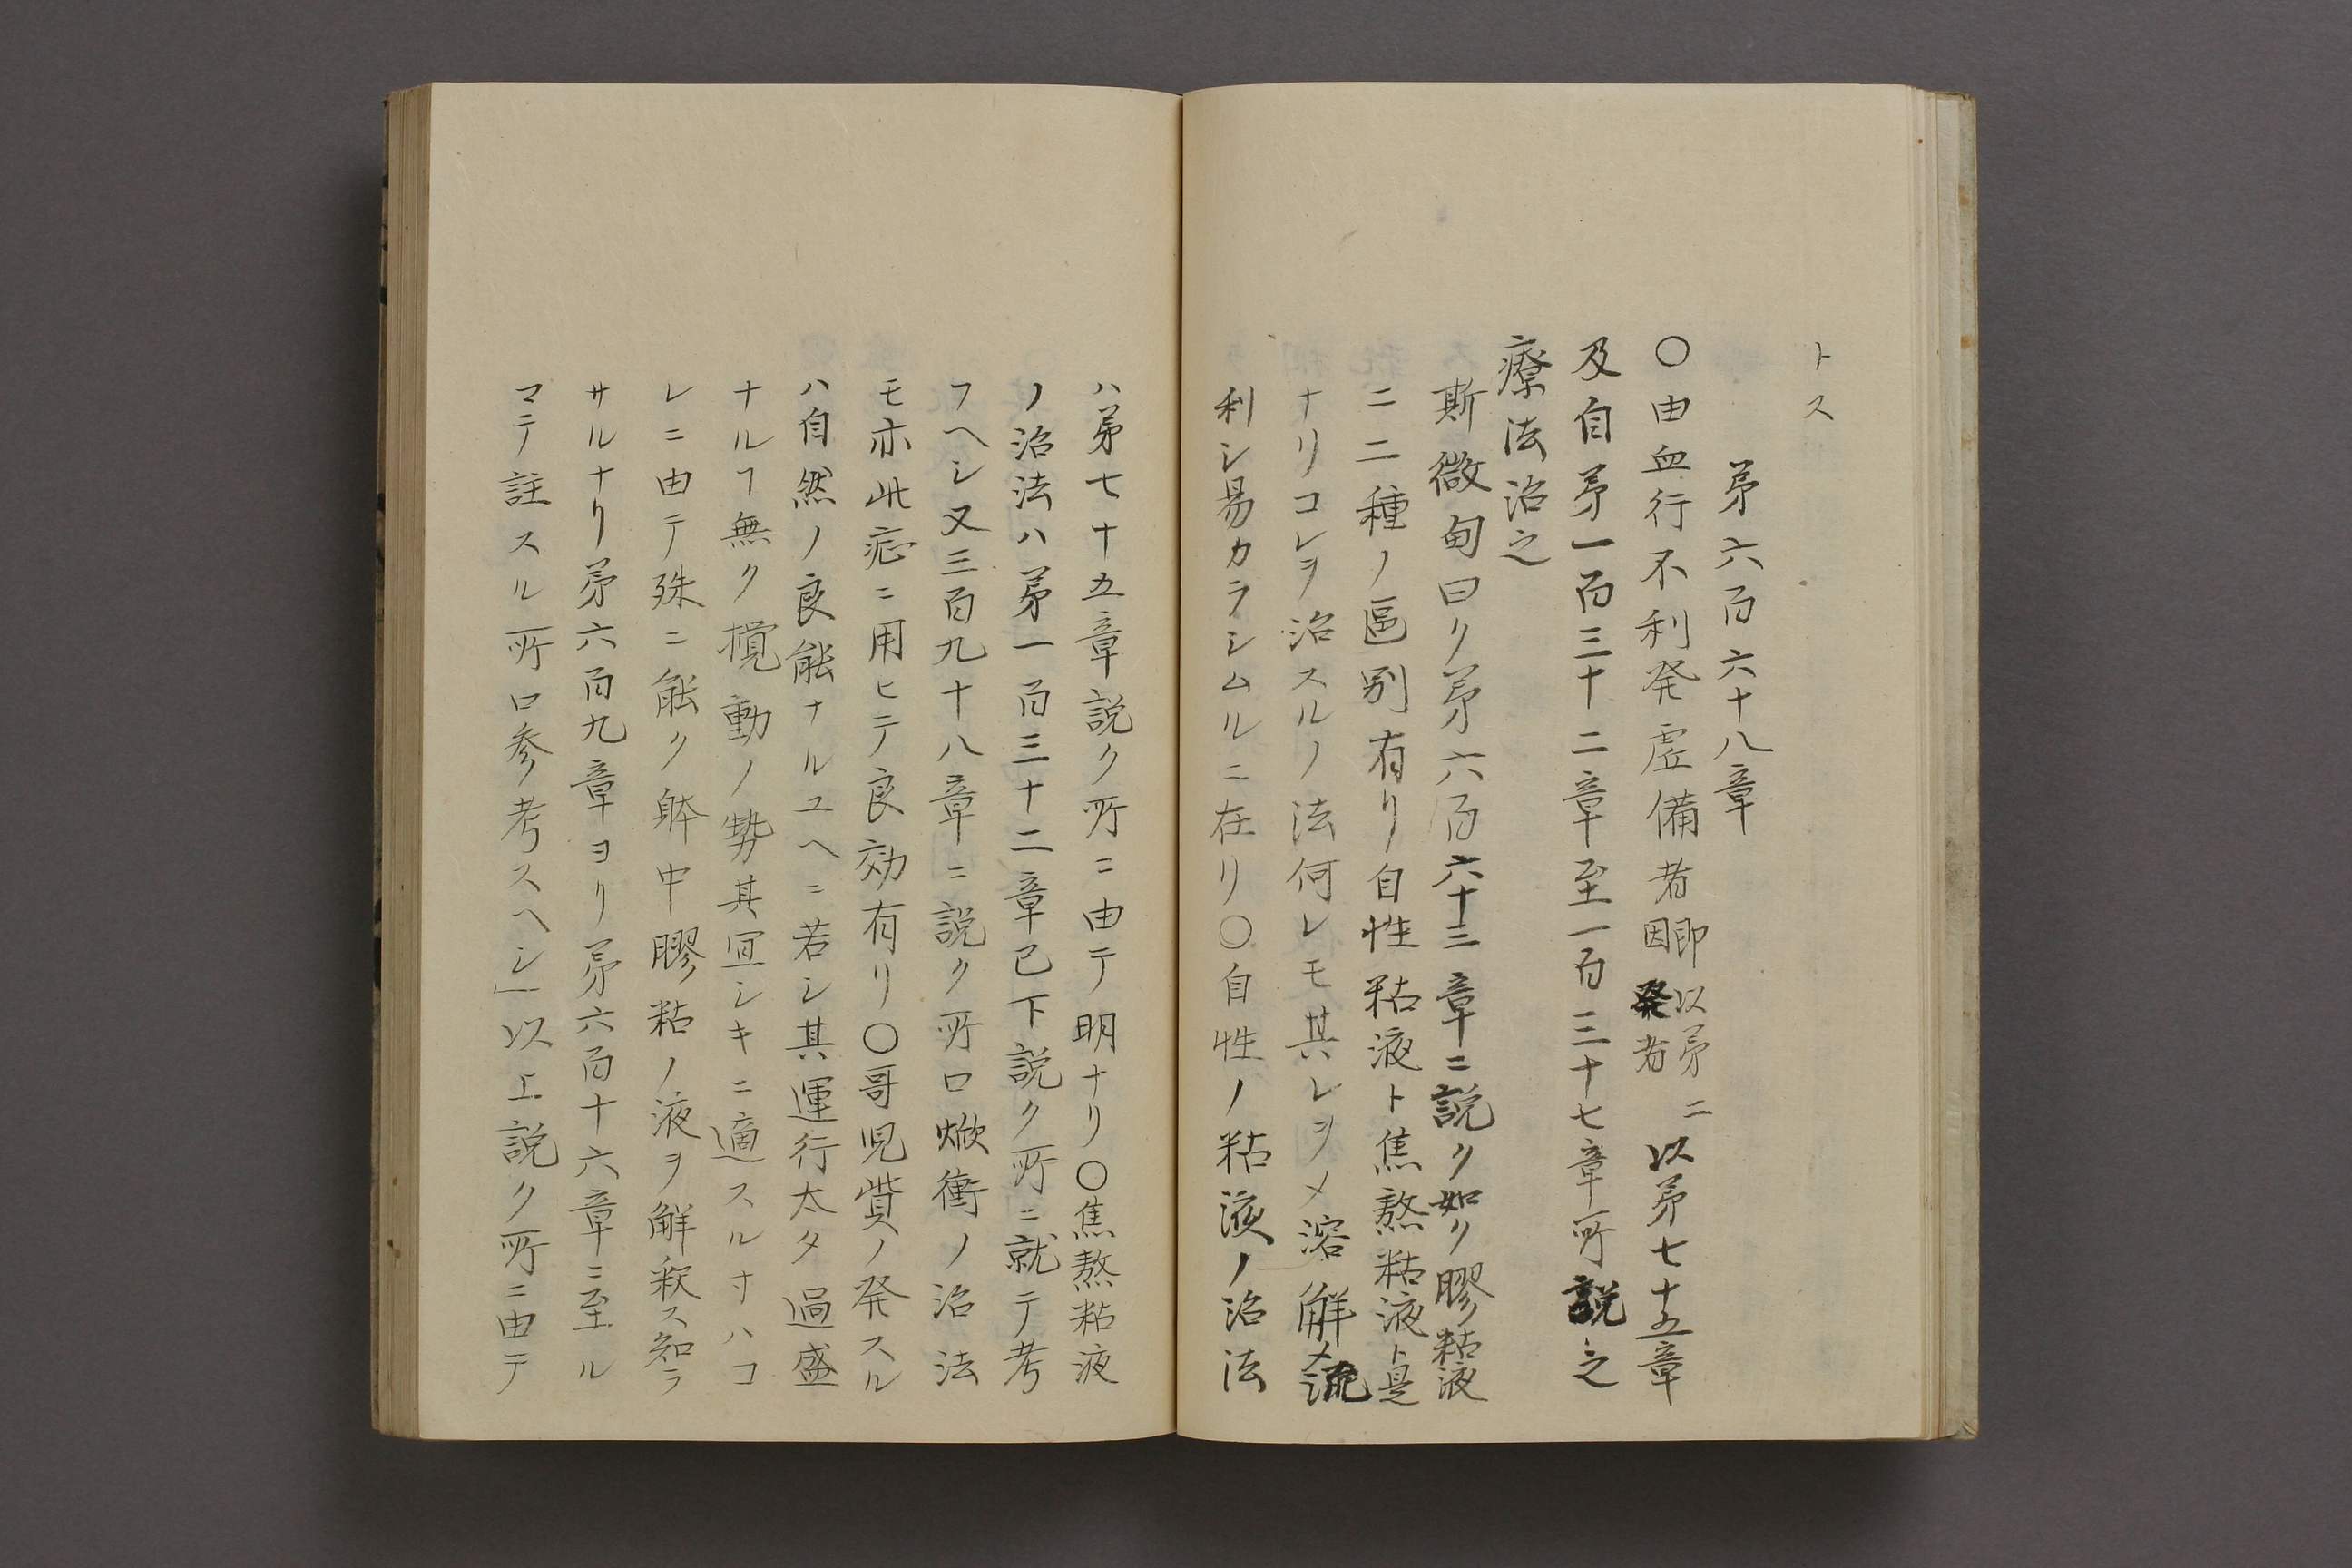 トス
第六百六十八章
〇由血行不利発虚備者即以第二因発者以第七十五章
及自第一百三十二章至一百三十七章所説之
療法治之
斯微甸曰ク第六百六十三章ニ説ク如ク膠粘液
ニ二種ノ區別有リ自性粘液ト焦熬粘液ト是
ナリコレヲ治スルノ法何レモ其レヲメ溶解メ流
利シ易カラシムルニ在リ〇自性ノ粘液ノ治法
ハ第七十五章説ク所ニ由テ明ナリ〇焦熬粘液
ノ治法ハ第一百三十二章已下説ク所ニ就テ考
フヘシ又三百九十八章ニ説ク所ロ焮衝ノ治法
モ亦此症ニ用ヒテ良効有リ〇哥児貲ノ発スル
ハ自然ノ良能ナルユヘニ若シ其運行太タ過盛
ナルヿ無ク攪動ノ勢其冝シキニ適スル寸ハコ
レニ由テ殊ニ能ク躰中膠粘ノ液ヲ解釈ス知ラ
サルナリ第六百九章ヨリ第六百十六章ニ至ル
マテ註スル所ロ参考スヘシ」以上説ク所ニ由テ